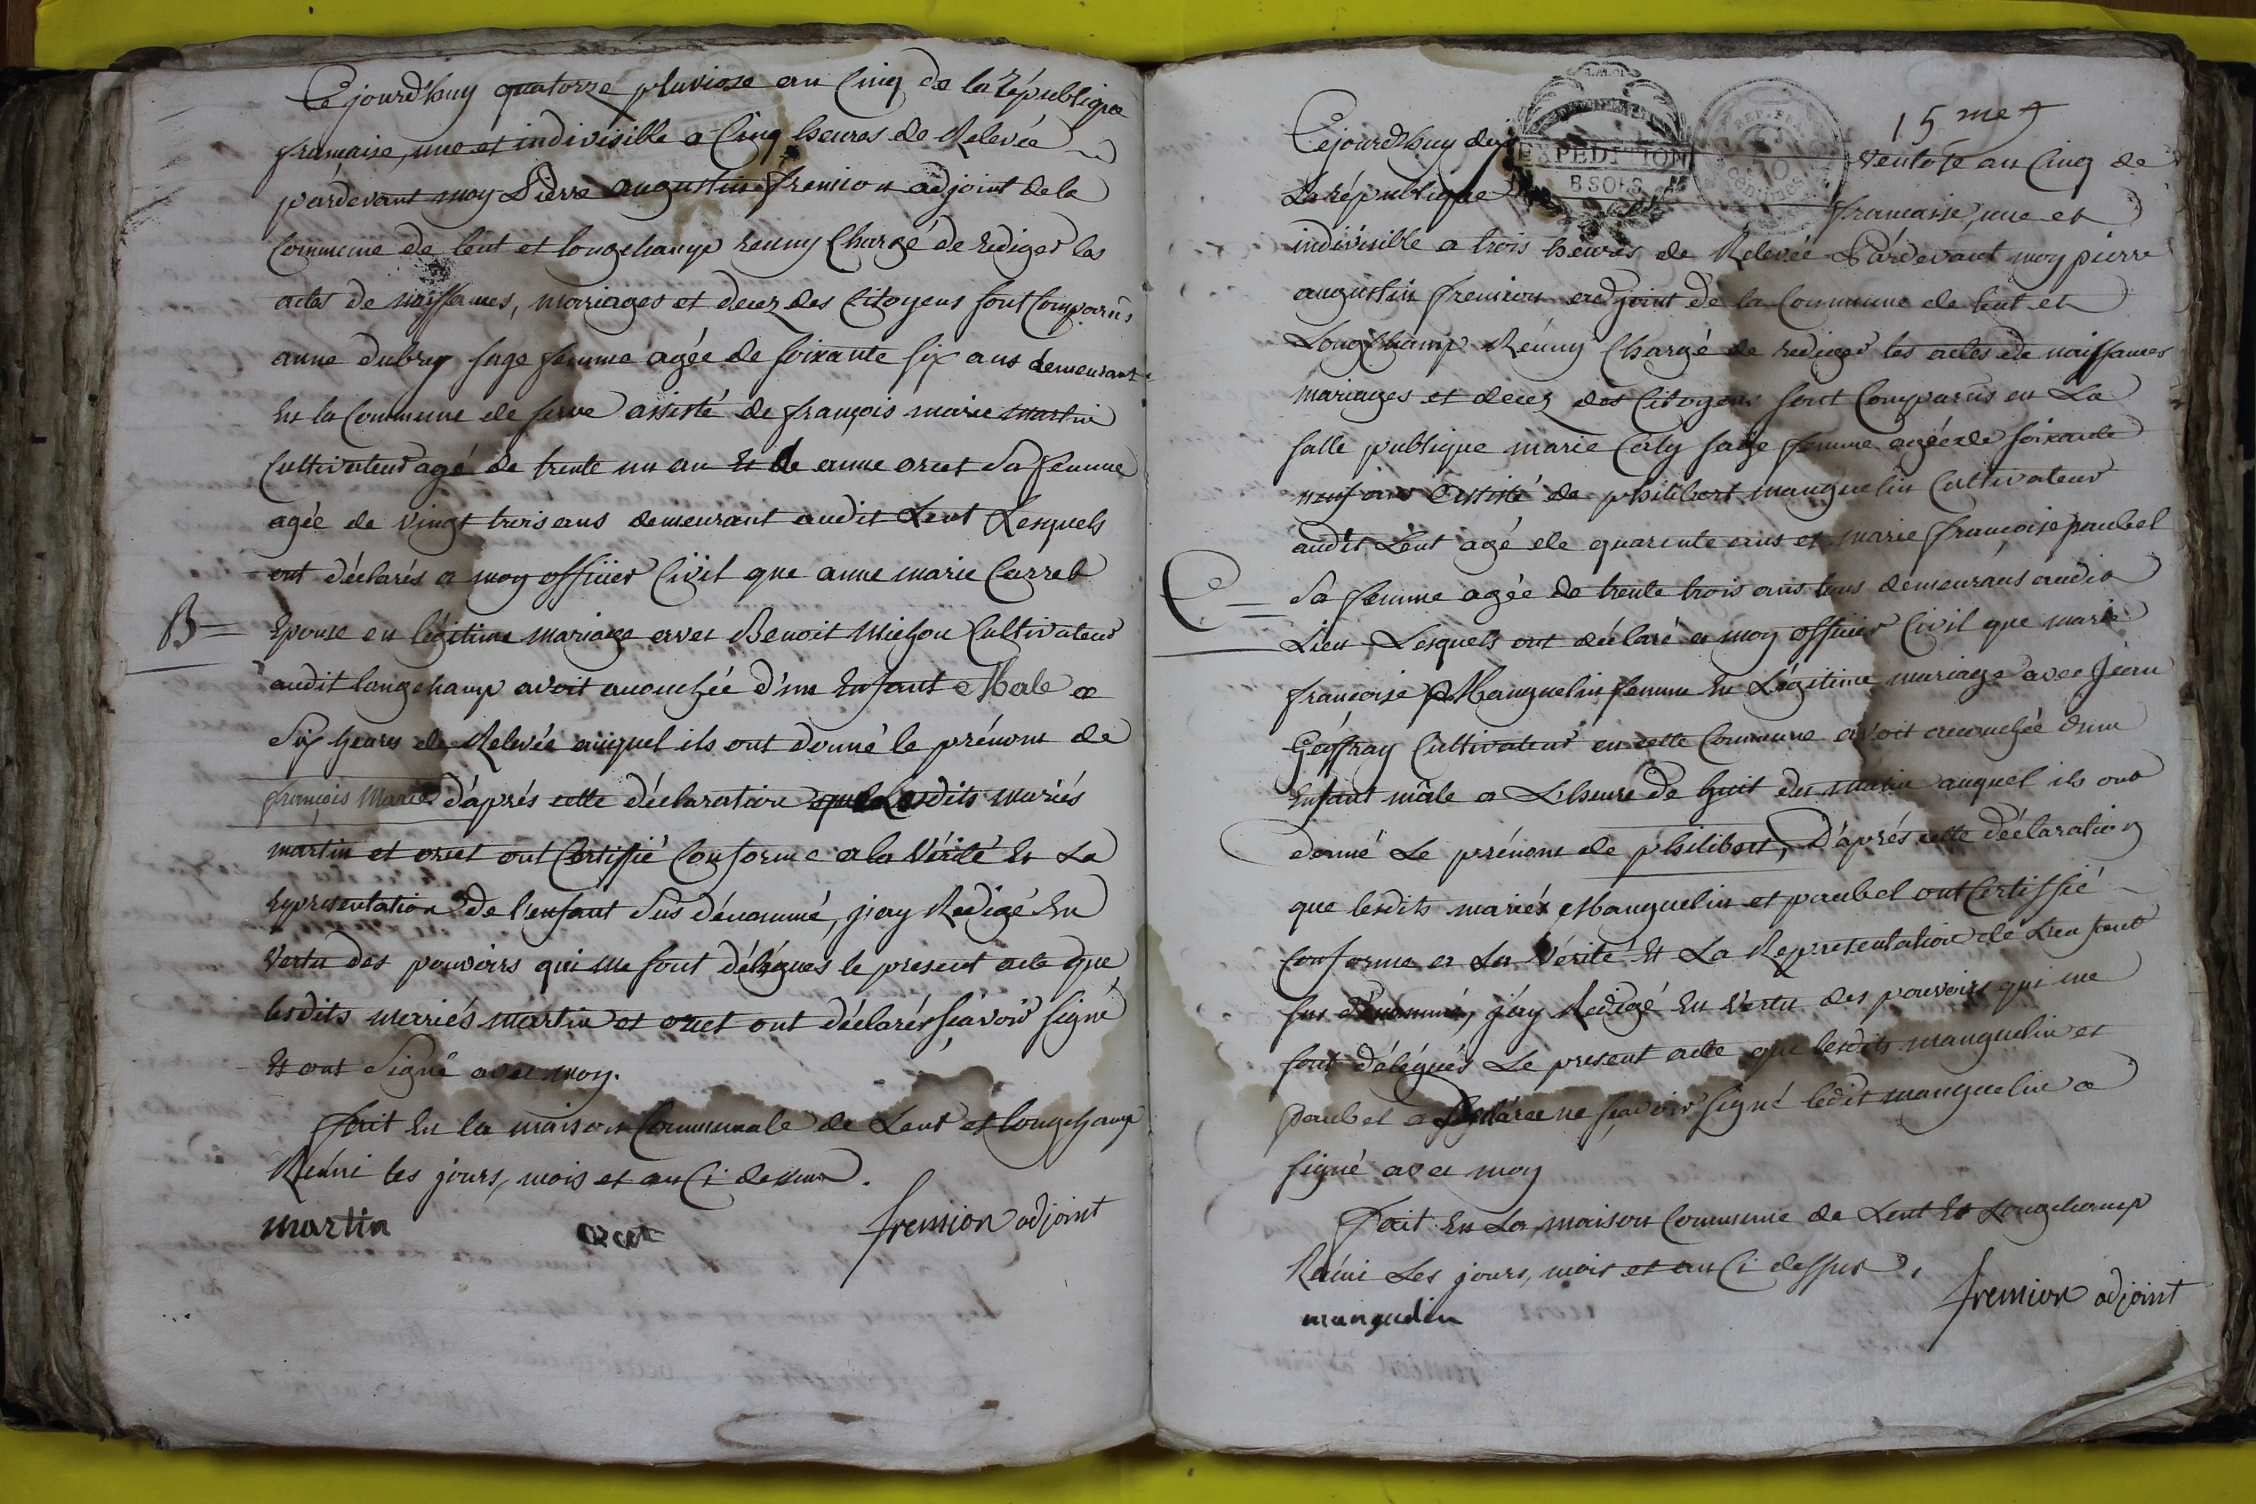 Cejourd'huy quatorze pluviose an Cinq de la république
francaise, une et indivisible a Cinq heures de Relevée
pardevant moy Pierre augustin fremion adjoint de la
Commune de lent et longchamp reuny Chargé de rediger les
actes de naissances, mariages et decez des Citoyens sont Comparûs
anne dubrey sage femme agée de soixante six ans demeurant
En la Commune de serve assisté de françois marie martin
Cultivateur agé de trente un an Et de anne orset Sa femme
agée de vingt trois ans demeurant audit Lent Lesquels
ont déclarés a moy officier Civil que anne marie Carret
B= Epouse en légitime mariage avec Benoit Michon Cultivateur
audit longchamp avoit acouchée d'un Enfant Mâle a
Six heures de Relevée auquel ils ont donné le prénom de
françois Marie d'aprés cette déclaration que Lesdits mariés
martin et orset ont Certifié Conforme a la Vérité Et La
Representation de l'enfant Sus dénommé, j'ay Redigé En
Vertu des pouvoirs qui me sont délégués le present acte que
lesdits mariés martin et orset ont déclarés sçavoir signé
Et ont Signé avec moy.
fait En la maison Communale de Lent et longchamp
Réuni les jours, mois et an Ci dessus.
martin orset fremion adjoint
15 me
EXPEDITION
8 SOLS
Cejourd'huy dix ventose an Cinq de
La république francaise, une et
indivisible a trois heures de Relevée Pardevant moy pierre
augustin fremion adjoint de la Commune de lent et
Longchamp Réuny Chargé de rediger les actes de naissances
mariages et decez des Citoyens sont Comparûs en La
salle publique marie Caty sage femme agée de soixante
neuf ans assisté de philibert manguelin Cultivateur
audit Lent agé de quarente ans et marie françoise paubel
C= Sa femme agée de trente trois ans tous demeurans audit
Lieu Lesquels ont déclaré a moy officier Civil que marie
francoise Manguelin femme En Légitime mariage avec Jean
Geoffray Cultivateur en cette Commune avoit acouchée d'un
Enfant mâle a L'heure de huit du matin auquel ils ont
donné Le prénom de philibert, D'aprés cette déclaration
que lesdits mariés Manguelin et paubel ont Certiffié
Conforme a La Vérité Et La Representation de L'enfant
sus dénommé, j'ay Redigé En Vertu des pouvoirs qui me
sont délégués Le present acte que lesdits manguelin et
paubel a déclarée ne sçavoir signé ledit manguelin a
signé avec moy
fait En La maison Commune de Lent Et Longchamp
Réuni Les jours, mois et an Ci dessus.
manguelin fremion adjoint